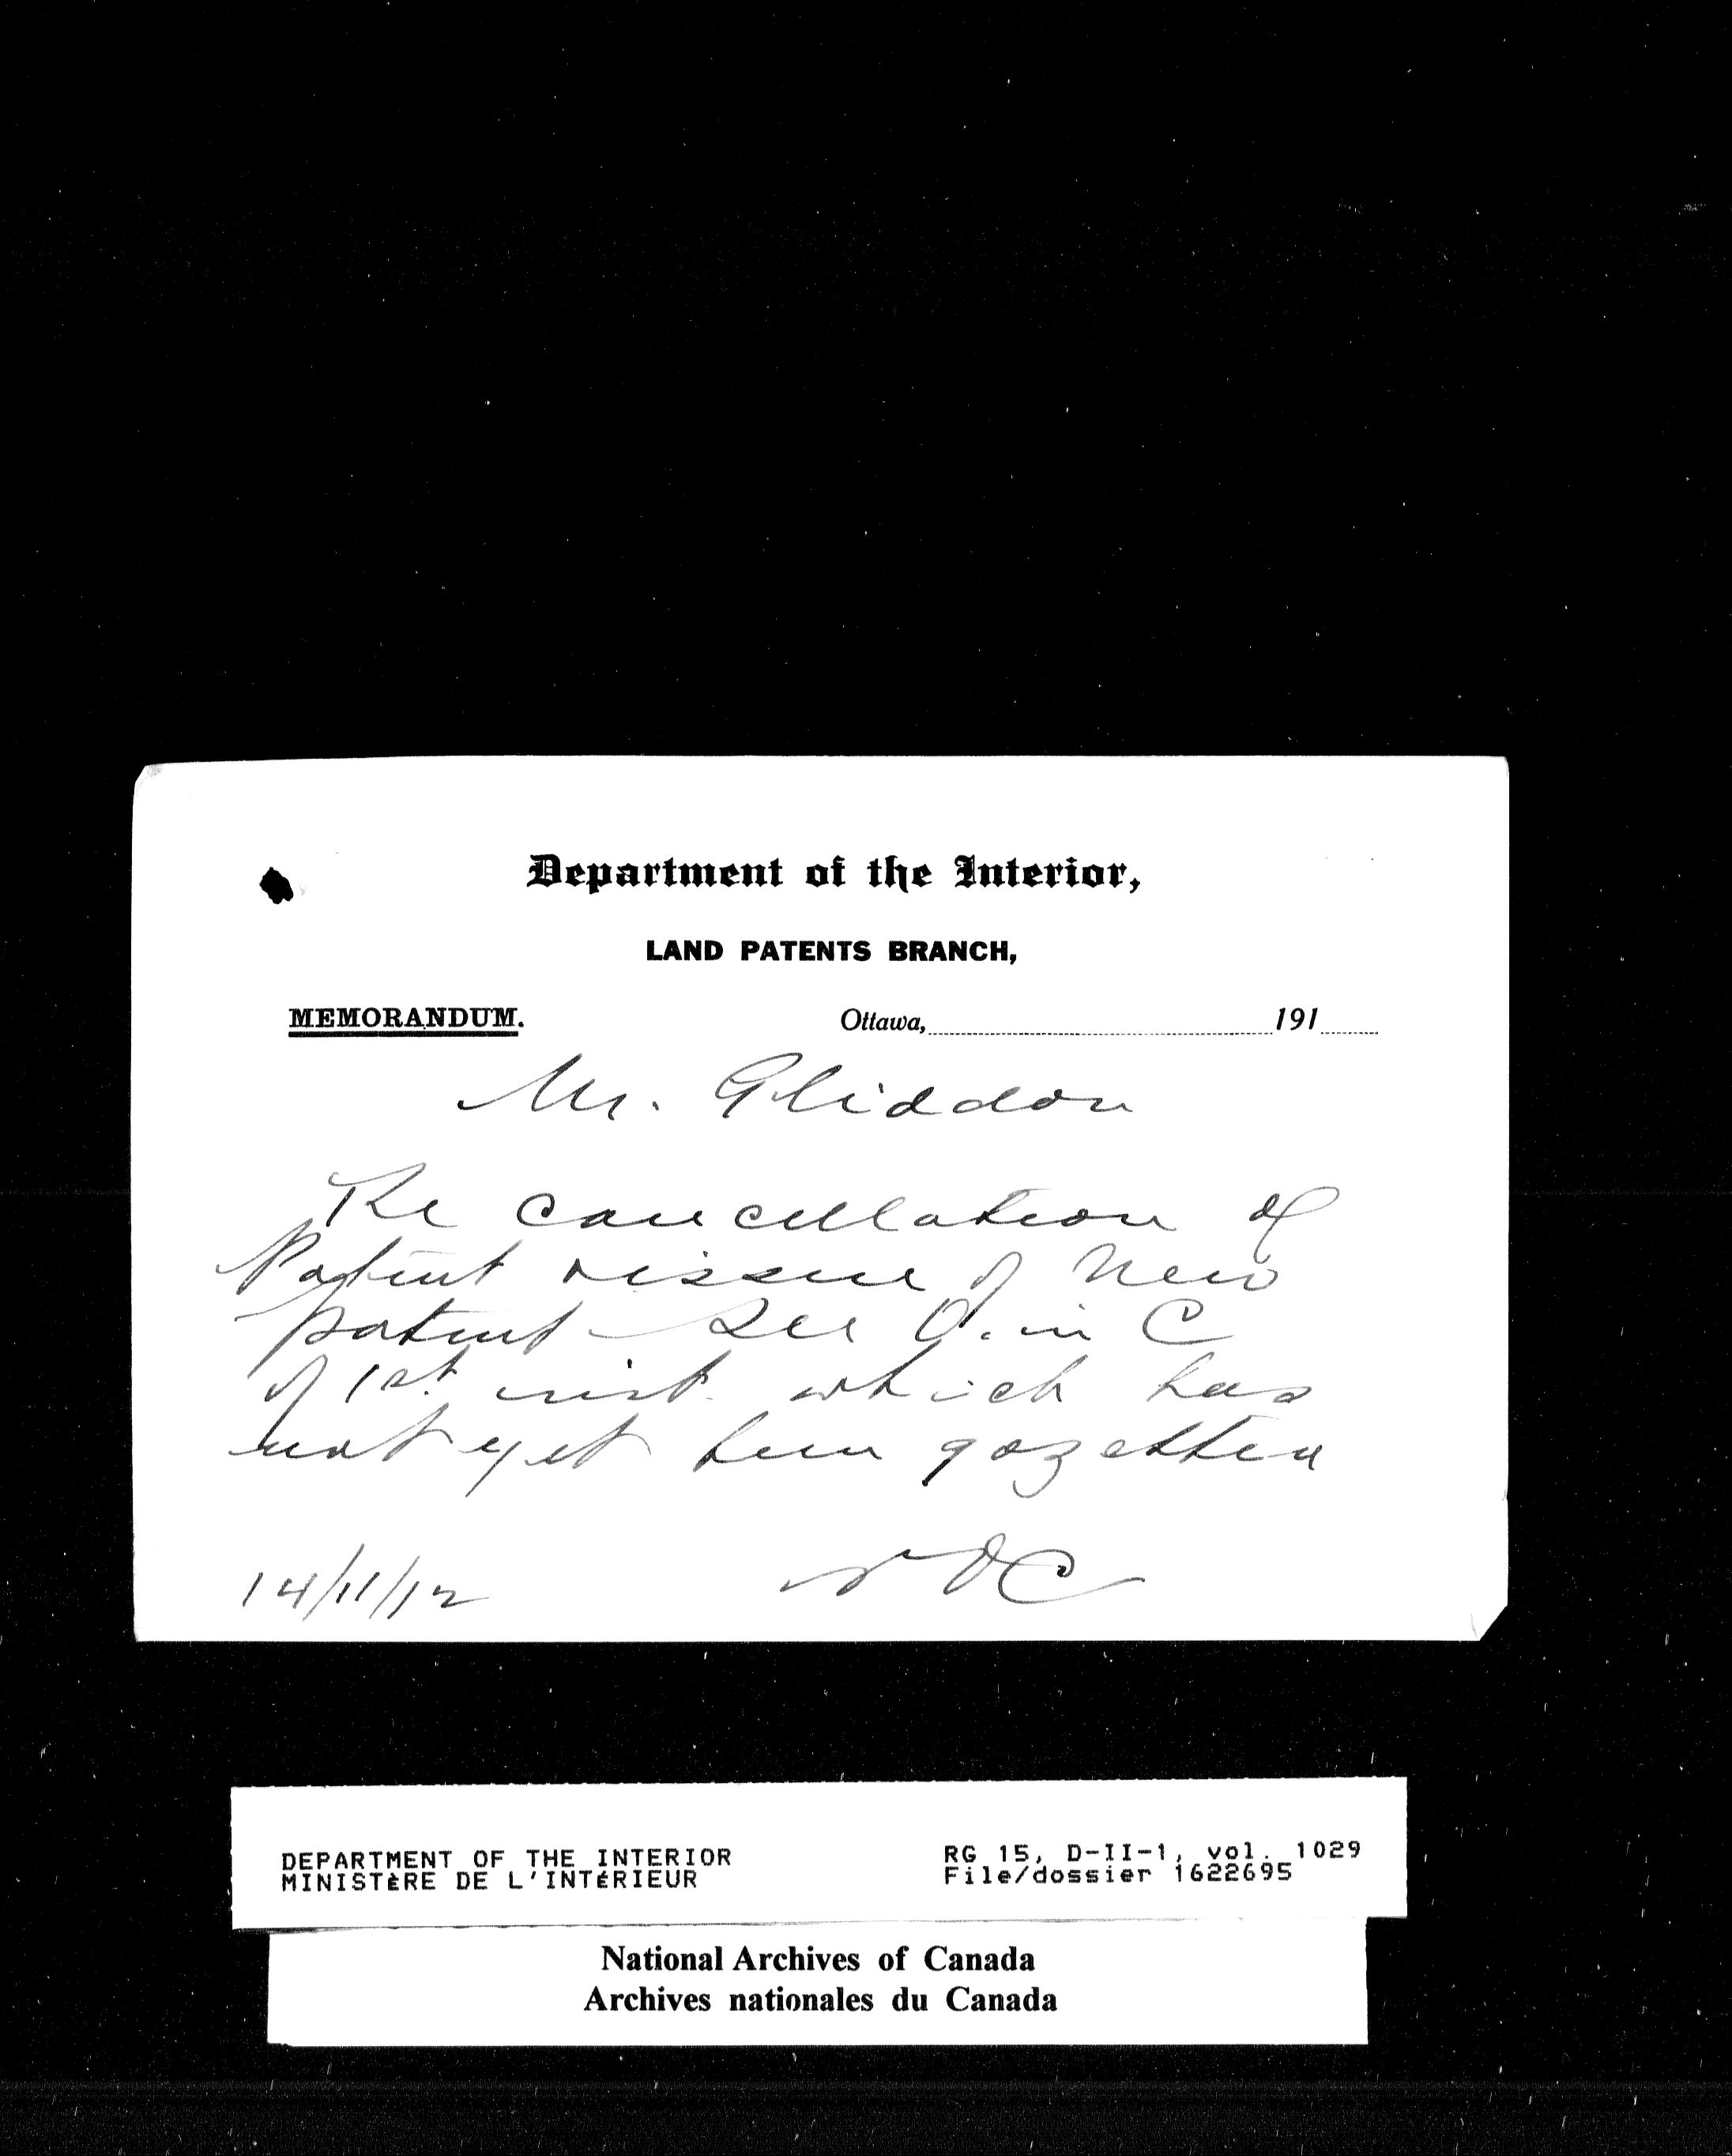 Department of the Interior,
LAND PATENTS BRANCH,
MEMORANDUM.
Ottawa, 191
Mr. Gliddon
The cancellation of
Patent & issue of New
patent - See O. in C
of 1st inst. which has
not yet been gazetted
14/11/12
DEPARTMENT OF THE INTERIOR RG 15, D-II-1, vol. 1029
MINISTÈRE DE L'INTÉRIEUR File/dossier 1622695
National Archives of Canada
Archives nationales du Canada